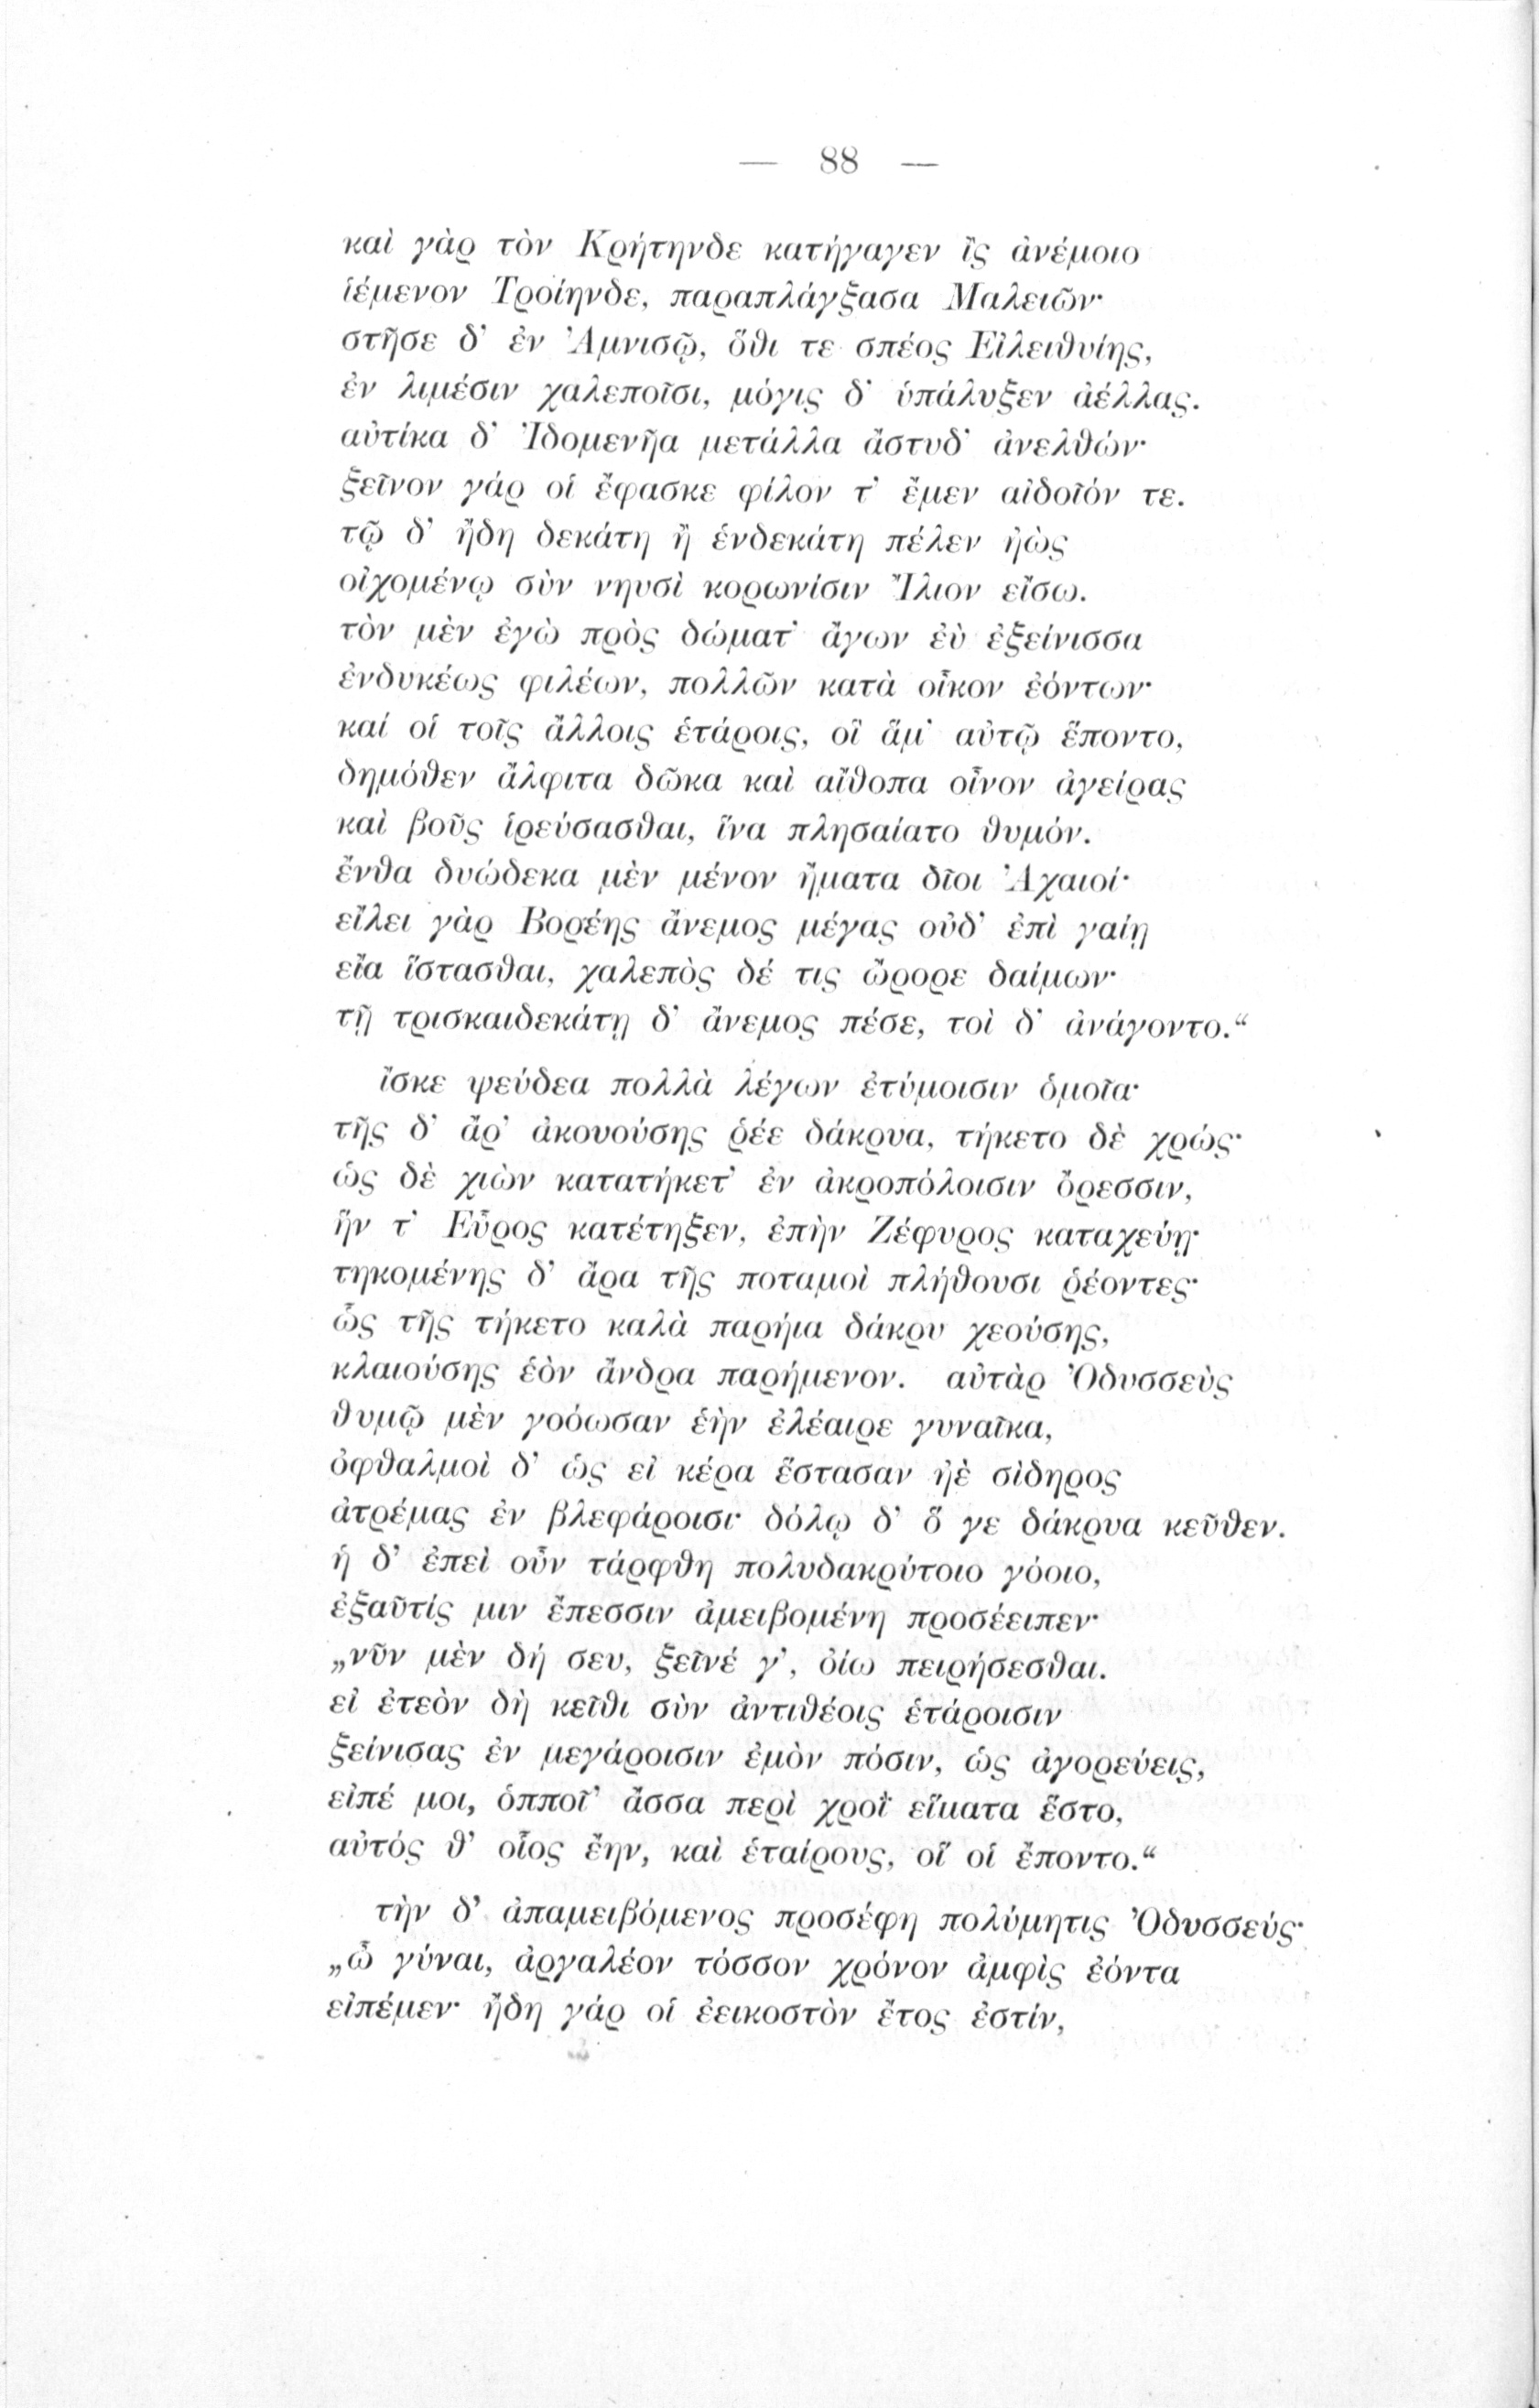 — 88 —
καὶ γὰρ τὸν Κρήτηνδε κατήγαγεν ἲς ἀνέμοιο
ἱέμενον Τροίηνδε, παραπλάγξασα Μαλειῶν·
στῆσε δ' ἐν Ἀμνισῷ, ὅθι τε σπέος Εἰλειθυίης,
ἐν λιμέσιν χαλεποῖσι, μόγις δ' ὑπάλυξεν ἀέλλας.
αὐτίκα δ' Ἰδομενῆα μετάλλα ἄστυδ' ἀνελθών·
ξεῖνον γάρ οἱ ἔφασκε φίλον τ' ἔμεν αἰδοῖόν τε.
τῷ δ' ἤδη δεκάτη ἢ ἑνδεκάτη πέλεν ἠὼς
οἰχομένῳ σὺν νηυσὶ κορωνίσιν Ἴλιον εἴσω.
τὸν μὲν ἐγὼ πρὸς δώματ' ἄγων ἐὺ ἐξείνισσα
ἐνδυκέως φιλέων, πολλῶν κατὰ οἶκον ἐόντων·
καί οἱ τοῖς ἄλλοις ἑτάροις, οἳ ἅμ' αὐτῷ ἕποντο,
δημόθεν ἄλφιτα δῶκα καὶ αἴθοπα οἶνον ἀγείρας
καὶ βοῦς ἱρεύσασθαι, ἵνα πλησαίατο θυμόν.
ἔνθα δυώδεκα μὲν μένον ἤματα δῖοι Ἀχαιοί·
εἴλει γὰρ Βορέης ἄνεμος μέγας οὐδ' ἐπὶ γαίῃ
εἴα ἵστασθαι, χαλεπὸς δέ τις ὤρορε δαίμων·
τῇ τρισκαιδεκάτῃ δ' ἄνεμος πέσε, τοὶ δ' ἀνάγοντο.“
ἴσκε ψεύδεα πολλὰ λέγων ἐτύμοισιν ὁμοῖα·
τῆς δ' ἄρ' ἀκουούσης ῥέε δάκρυα, τήκετο δὲ χρώς·
ὡς δὲ χιὼν κατατήκετ' ἐν ἀκροπόλοισιν ὄρεσσιν,
ἥν τ' Εὖρος κατέτηξεν, ἐπὴν Ζέφυρος καταχεύῃ·
τηκομένης δ' ἄρα τῆς ποταμοὶ πλήθουσι ῥέοντες·
ὣς τῆς τήκετο καλὰ παρήια δάκρυ χεούσης,
κλαιούσης ἑὸν ἄνδρα παρήμενον. αὐτὰρ Ὀδυσσεὺς
θυμῷ μὲν γοόωσαν ἑὴν ἐλέαιρε γυναῖκα,
ὀφθαλμοὶ δ' ὡς εἰ κέρα ἕστασαν ἠὲ σίδηρος
ἀτρέμας ἐν βλεφάροισι· δόλῳ δ' ὅ γε δάκρυα κεῦθεν.
ἡ δ' ἐπεὶ οὖν τάρφθη πολυδακρύτοιο γόοιο,
ἐξαῦτίς μιν ἔπεσσιν ἀμειβομένη προσέειπεν·
„νῦν μὲν δή σευ, ξεῖνέ γ', ὀίω πειρήσεσθαι.
εἰ ἐτεὸν δὴ κεῖθι σὺν ἀντιθέοις ἑτάροισιν
ξείνισας ἐν μεγάροισιν ἐμὸν πόσιν, ὡς ἀγορεύεις,
εἰπέ μοι, ὁπποῖ' ἄσσα περὶ χροῒ εἵματα ἕστο,
αὐτός θ' οἷος ἔην, καὶ ἑταίρους, οἵ οἱ ἕποντο.“
τὴν δ' ἀπαμειβόμενος προσέφη πολύμητις Ὀδυσσεύς·
„ὦ γύναι, ἀργαλέον τόσσον χρόνον ἀμφὶς ἐόντα
εἰπέμεν· ἤδη γάρ οἱ ἐεικοστὸν ἔτος ἐστίν,